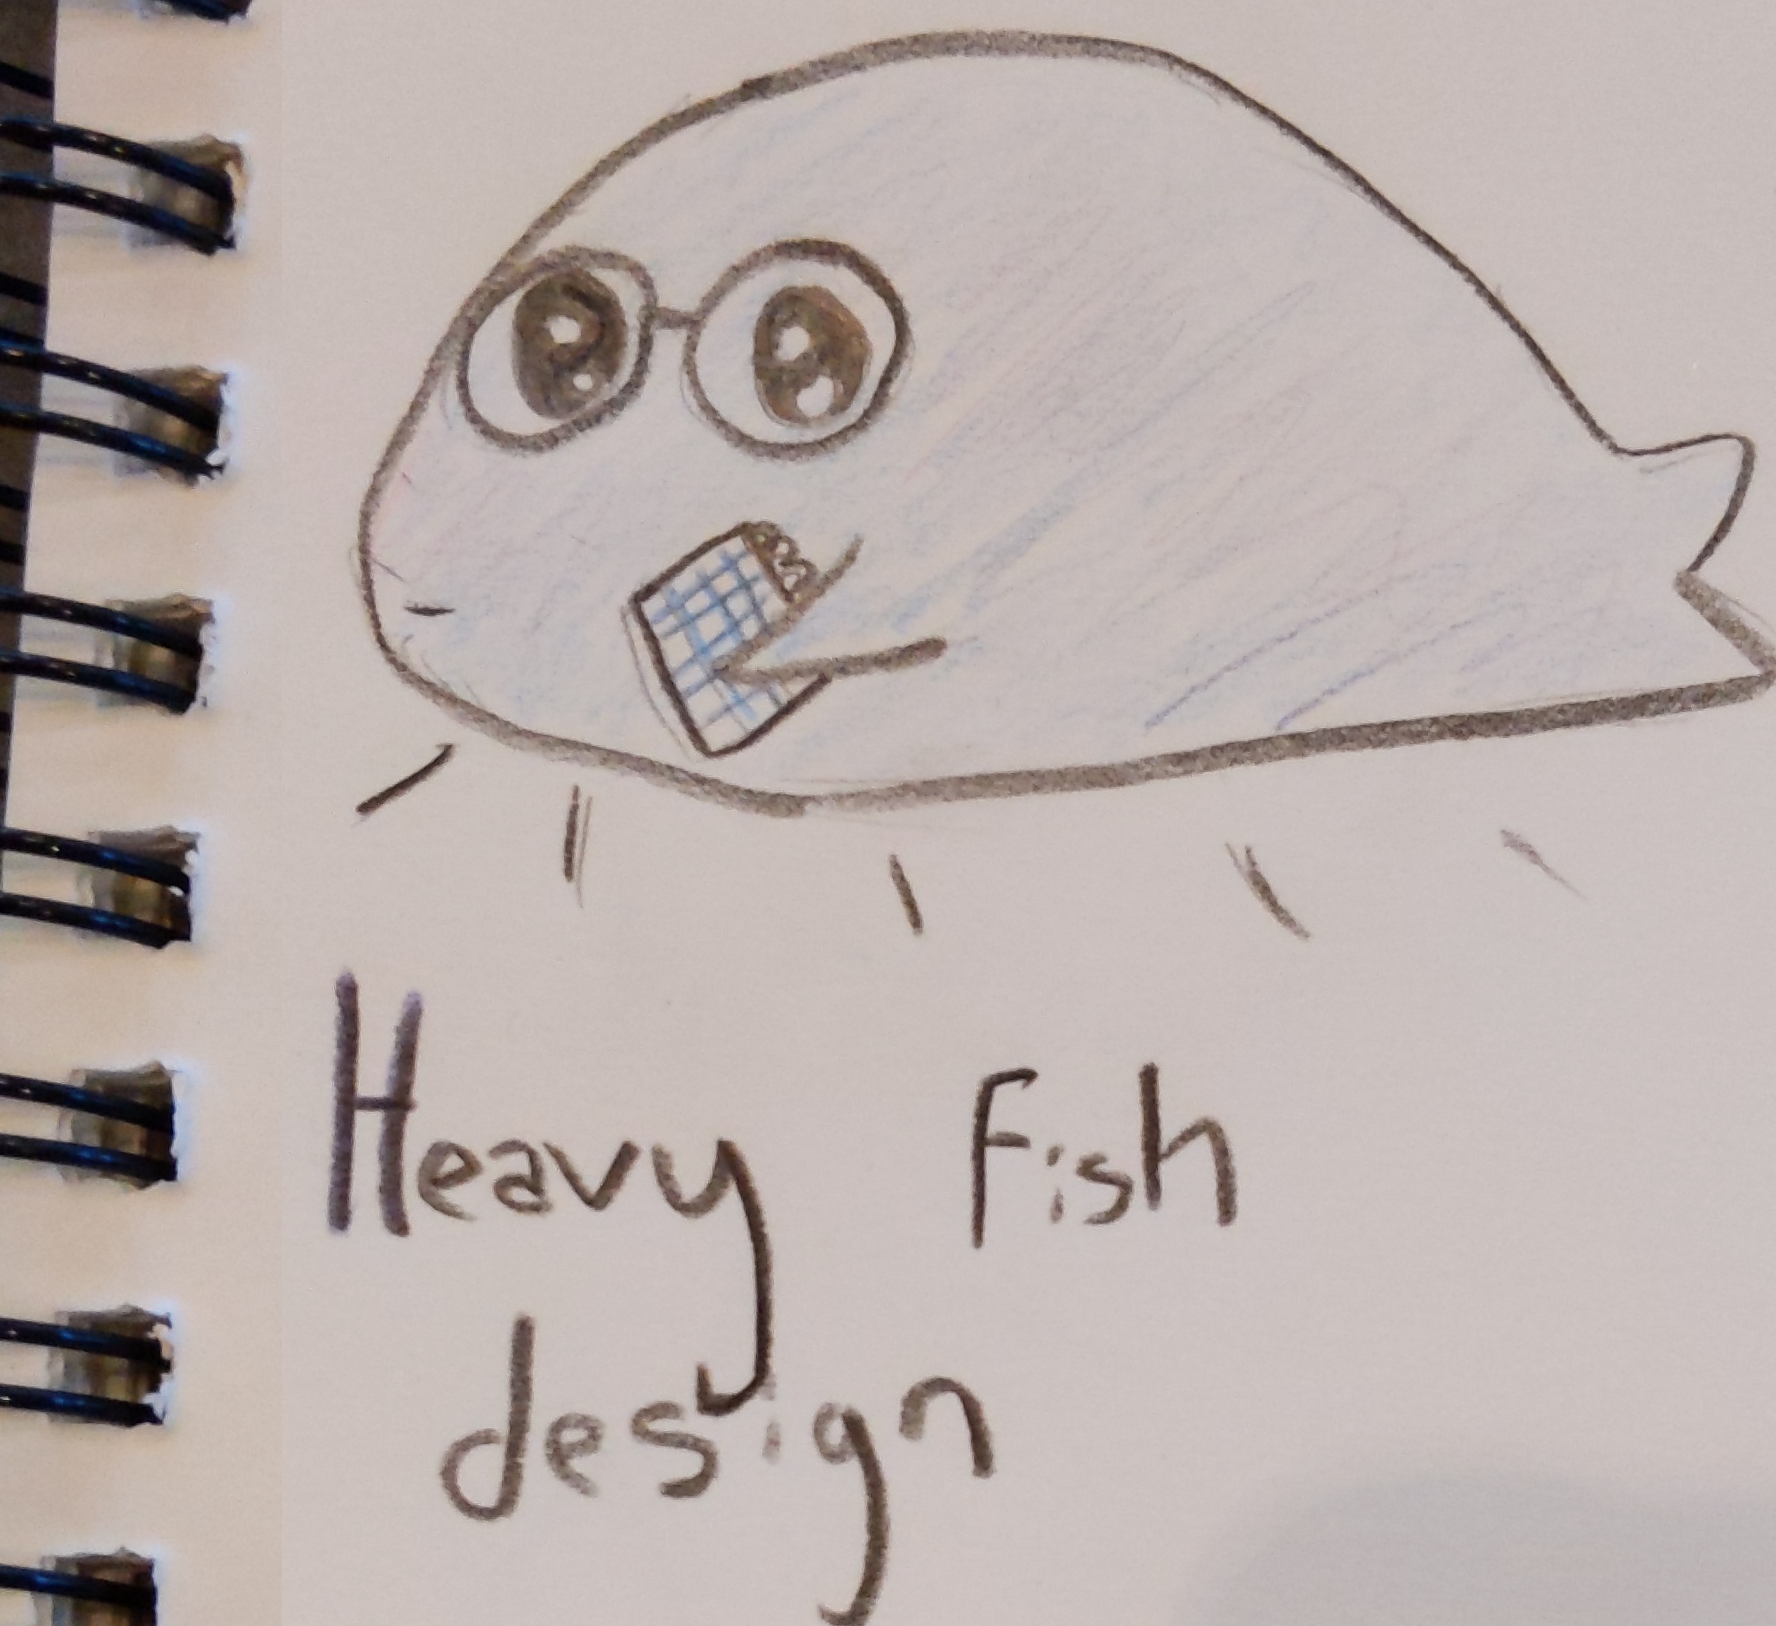 Heavy Fish
design